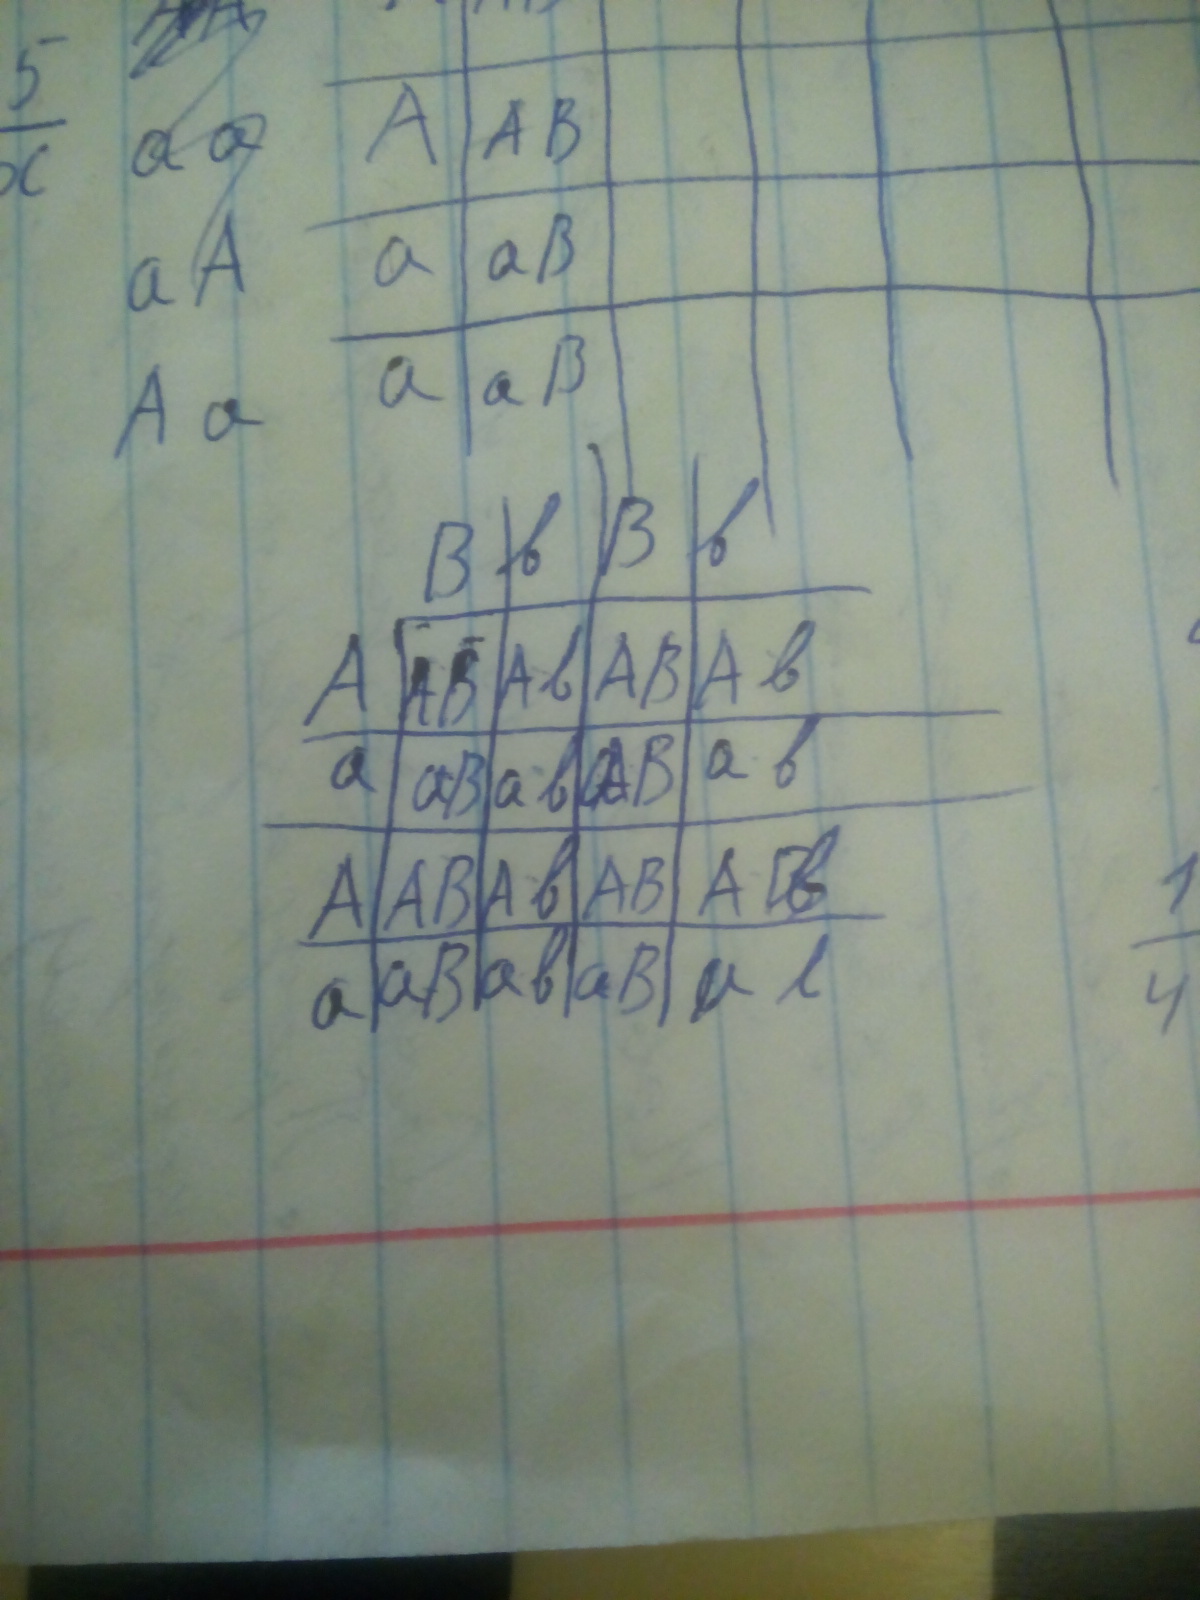 5
х
a a
A AB
a A
a aB
A a
a aB
B в B в
A AB Aв AB A в
a aB aв aB a в
A AB Aв AB A в
a aB aв aB a в
1
4